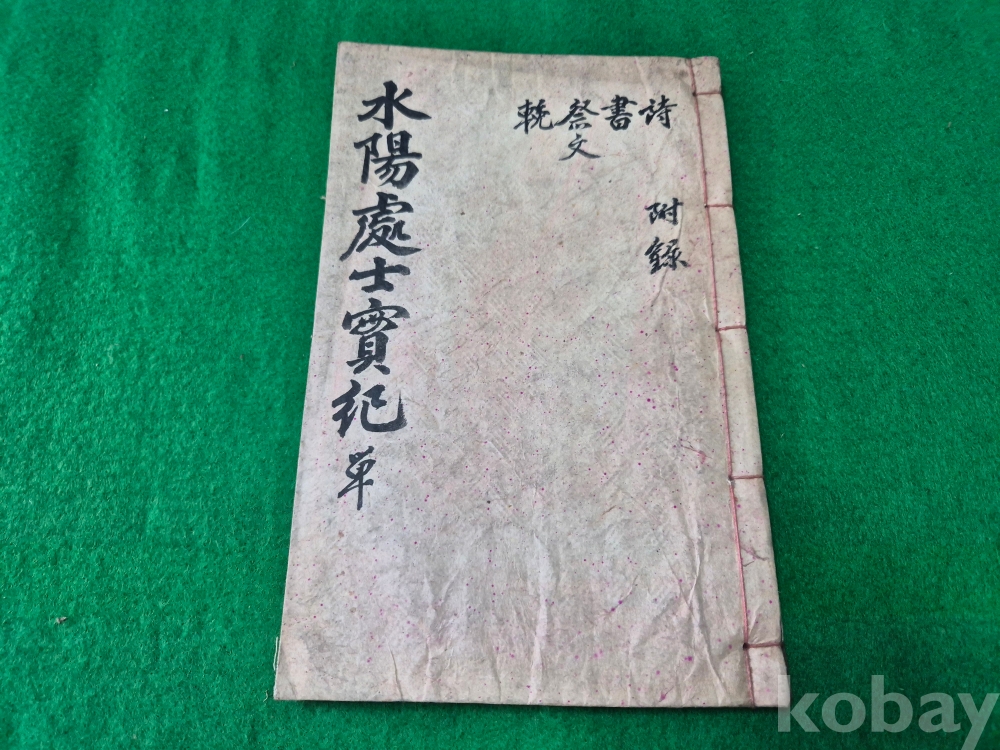 水陽處士實紀 単
詩
書
祭文
輓
附錄
kobay